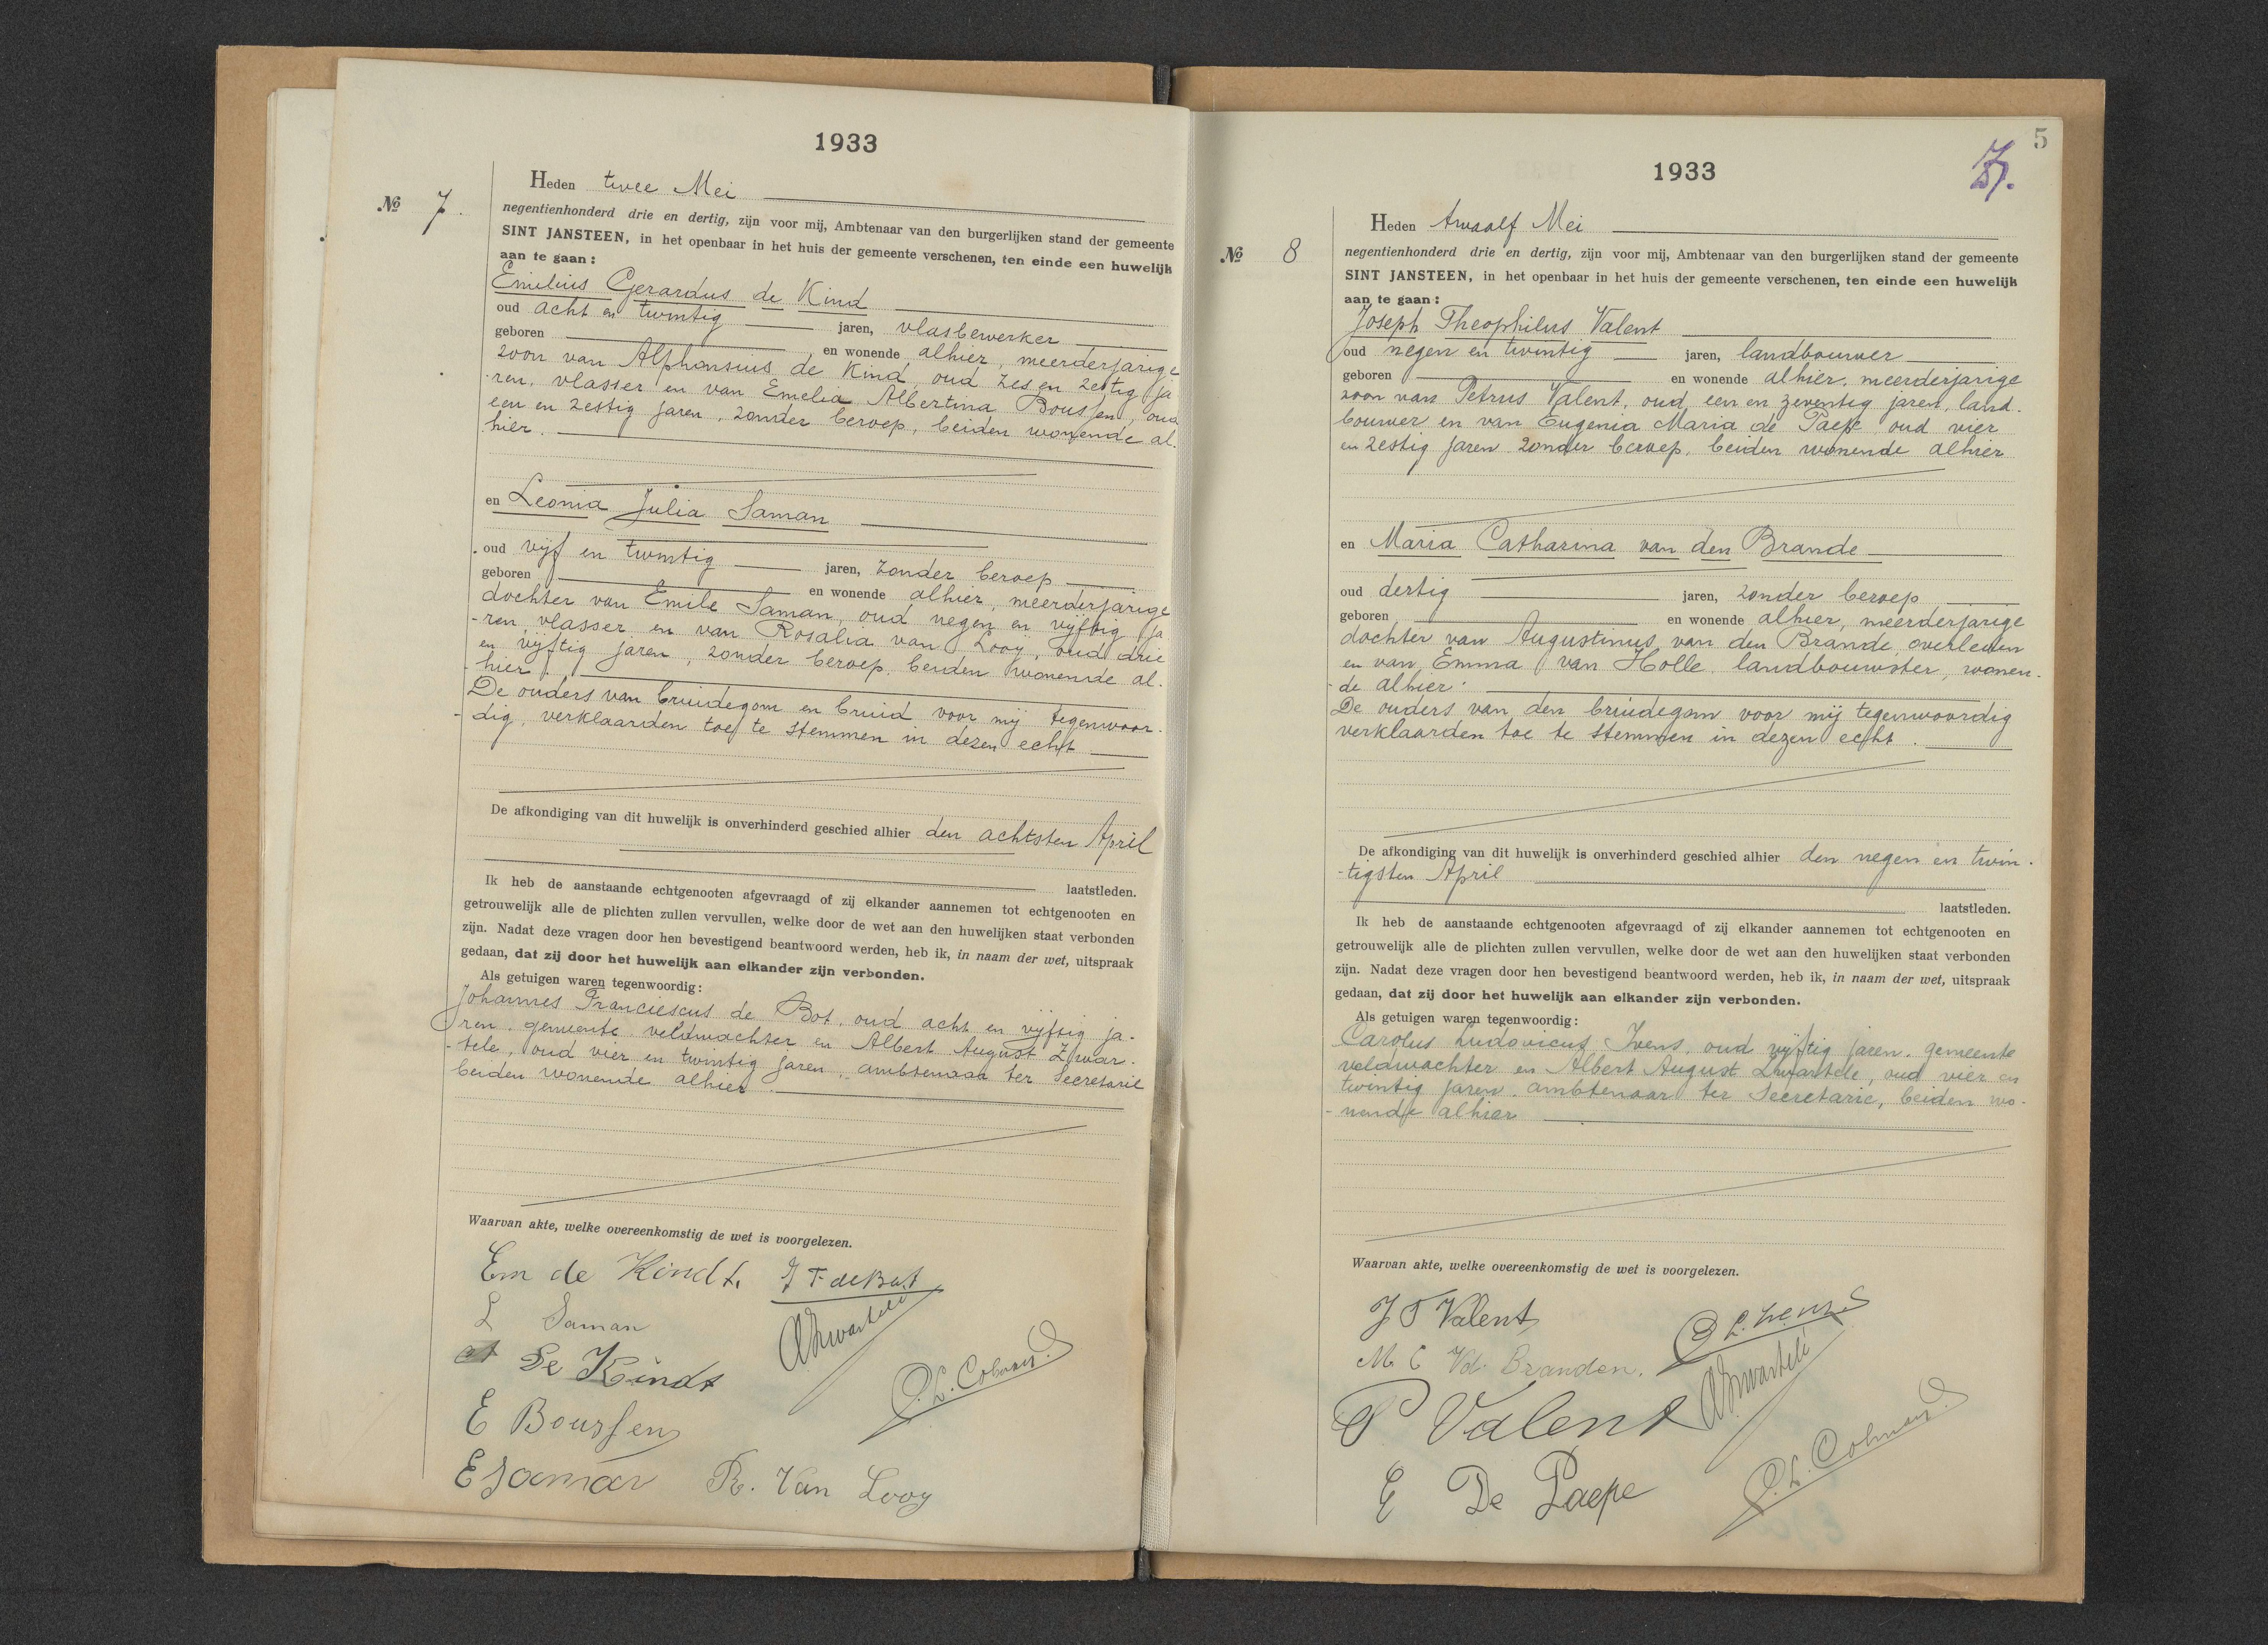 1933
Heden twee Mei
№ 7.
negentienhonderd drie en dertig, zijn voor mij, Ambtenaar van den burgerlijken stand der gemeente
SINT JANSTEEN, in het openbaar in het huis der gemeente verschenen, ten einde een huwelijk
aan te gaan:
Emilius Gerardus de Kind
oud acht en twintig jaren, vlasbewerker
geboren en wonende alhier, meerderjarige
zoon van Alphonsius de Kind, oud zes en zestig ja
-ren, vlasser en van Emelia Albertina Boussen, oud
een en zestig jaren, zonder beroep, beiden wonende al-
hier.
en Leonia Julia Saman
oud vijf en twintig jaren, zonder beroep
geboren en wonende alhier, meerderjarige
dochter van Emile Saman, oud negen en vijftig ja
-ren, vlasser en van Rosalia van Looÿ, oud drie
en vijftig jaren, zonder beroep, beiden wonende al-
hier.
De ouders van bruidegom en bruid voor mij tegenwoor-
-dig, verklaarden toe te stemmen in dezen echt
De afkondiging van dit huwelijk is onverhinderd geschied alhier den achtsten April
laatstleden.
Ik heb de aanstaande echtgenooten afgevraagd of zij elkander aannemen tot echtgenooten en
getrouwelijk alle de plichten zullen vervullen, welke door de wet aan den huwelijken staat verbonden
zijn. Nadat deze vragen door hen bevestigend beantwoord werden, heb ik, in naam der wet, uitspraak
gedaan, dat zij door het huwelijk aan elkander zijn verbonden.
Als getuigen waren tegenwoordig:
Johannes Franciescus de Bot, oud acht en vijftig ja-
ren, gemeente veldwachter en Albert August Zwar-
-tele, oud vier en twintig jaren, ambtenaar ter Secretarie
beiden wonende alhier.
Waarvan akte, welke overeenkomstig de wet is voorgelezen.
Em de Kindt.
J F de Bot
L Saman
AZwartele
De Kindt
E Boussen
E Saman
R. Van Looy
5
1933
Heden twaalf Mei
№ 8
negentienhonderd drie en dertig, zijn voor mij, Ambtenaar van den burgerlijken stand der gemeente
SINT JANSTEEN, in het openbaar in het huis der gemeente verschenen, ten einde een huwelijk
aan te gaan:
Joseph Theophilus Valent
oud negen en twintig jaren, landbouwer
geboren en wonende alhier, meerderjarige
zoon van Petrus Valent, oud een en zeventig jaren, land-
bouwer en van Eugenia Maria de Paepe oud vier
en zestig jaren zonder beroep, beiden wonende alhier
en Maria Catharina van den Brande
oud dertig jaren, zonder beroep
geboren en wonende alhier, meerderjarige
dochter van Augustinus van den Brande, overleden
en van Emma van Holle, landbouwster, wonen-
-de alhier.
De ouders van den bruidegom voor mij tegenwoordig
verklaarden toe te stemmen in dezen echt.
De afkondiging van dit huwelijk is onverhinderd geschied alhier den negen en twin-
-tigsten April
laatstleden.
Ik heb de aanstaande echtgenooten afgevraagd of zij elkander aannemen tot echtgenooten en
getrouwelijk alle de plichten zullen vervullen, welke door de wet aan den huwelijken staat verbonden
zijn. Nadat deze vragen door hen bevestigend beantwoord werden, heb ik, in naam der wet, uitspraak
gedaan, dat zij door het huwelijk aan elkander zijn verbonden.
Als getuigen waren tegenwoordig:
Carolus Ludovicus Ivens, oud vijftig jaren, gemeente
veldwachter en Albert August Zwartele, oud vier en
twintig jaren, ambtenaar ter Secretarie, beiden wo-
-nende alhier
Waarvan akte, welke overeenkomstig de wet is voorgelezen.
J T Valent
M C Vd. Branden.
AZwartele
P Valent
E De Paepe